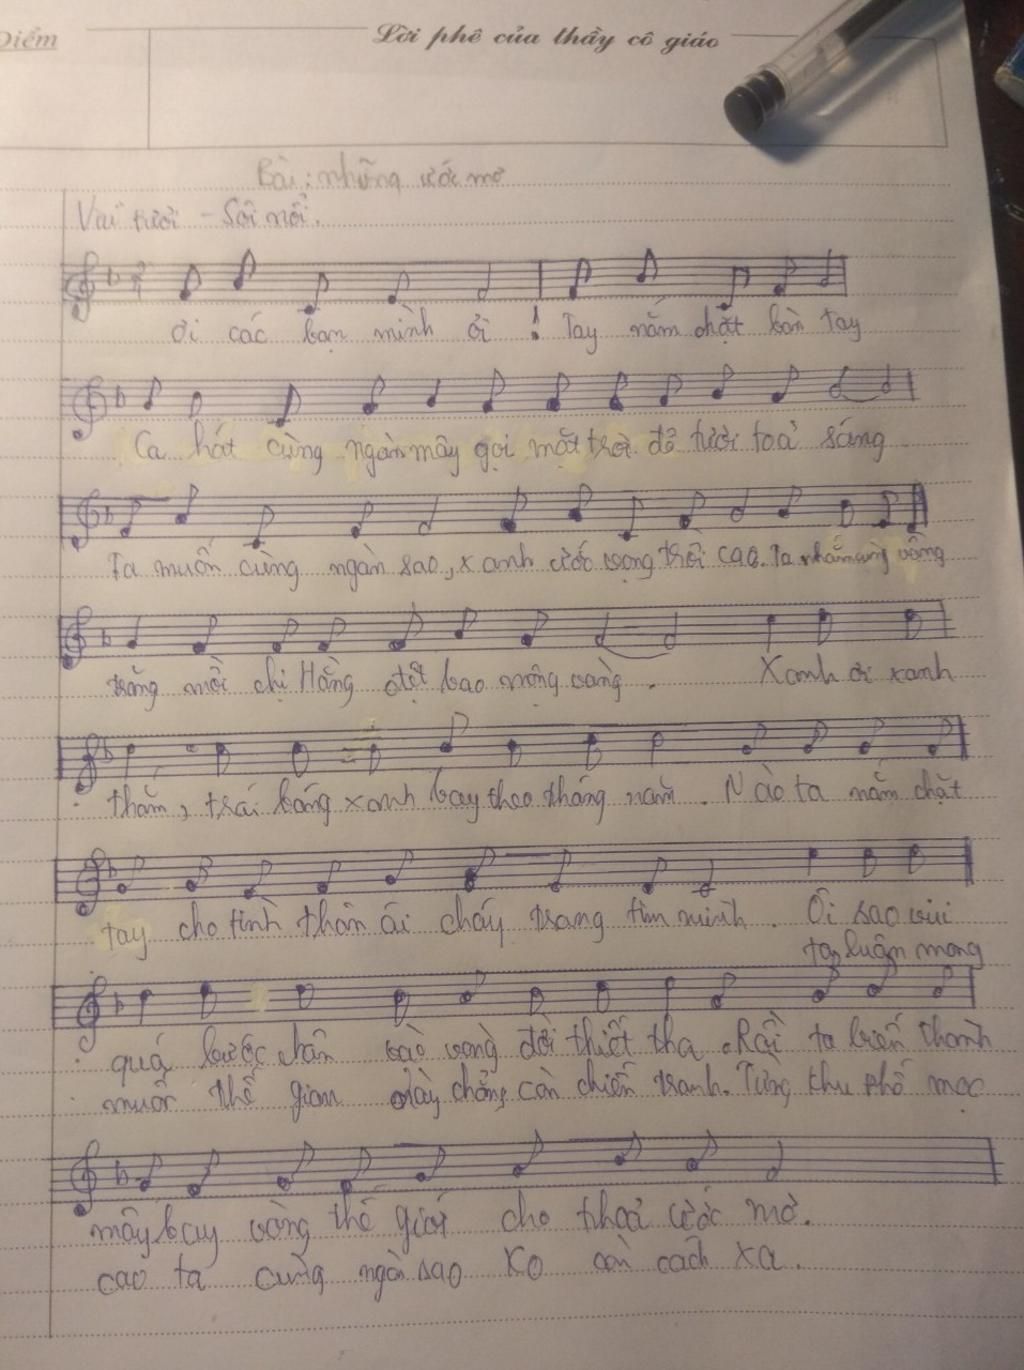 Điểm
Lời phê của thầy cô giáo
Bài: những ước mơ
Vui tươi - Sôi nổi.
ơi các bạn mình ơi ! Tay nắm chặt bàn tay
Ca hát cùng ngàn mây gọi mặt trời đỏ tươi toả sáng
Ta muốn cùng ngàn sao, xanh ước vọng trời cao. Ta nhắm cùng vầng
trăng mời chị Hằng dệt bao mộng vàng. Xanh ơi xanh
thắm, trái bóng xanh bay theo tháng năm. Nào ta nắm chặt
tay cho tình thân ái cháy trong tim mình. Ôi sao vui
ta luôn mong
quá bước chân vào vòng đời thiết tha. Rồi ta biến thành
muốn thế gian này chẳng còn chiến tranh. Từng khu phố mọc
mây bay vòng thế giới cho thoả ước mơ.
cao ta cùng ngàn sao ko còn cách xa.